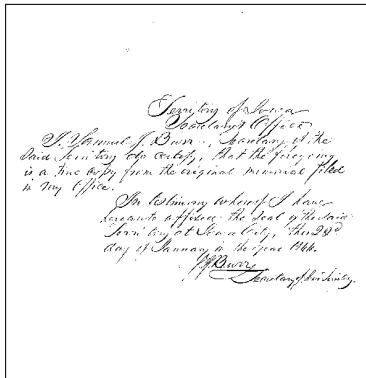 Territory of Iowa
Secretary's Office
I, Samuel J. Burr, Secretary of the
Said Territory do certify, that the foregoing
is a true copy from the original memorial filed
in my Office.
In testimony whereof I have
hereunto affixed the Seal of the said
Territory at Iowa City, this 29th
day of January in the year 1844.
S J Burr
Secretary of Territory.